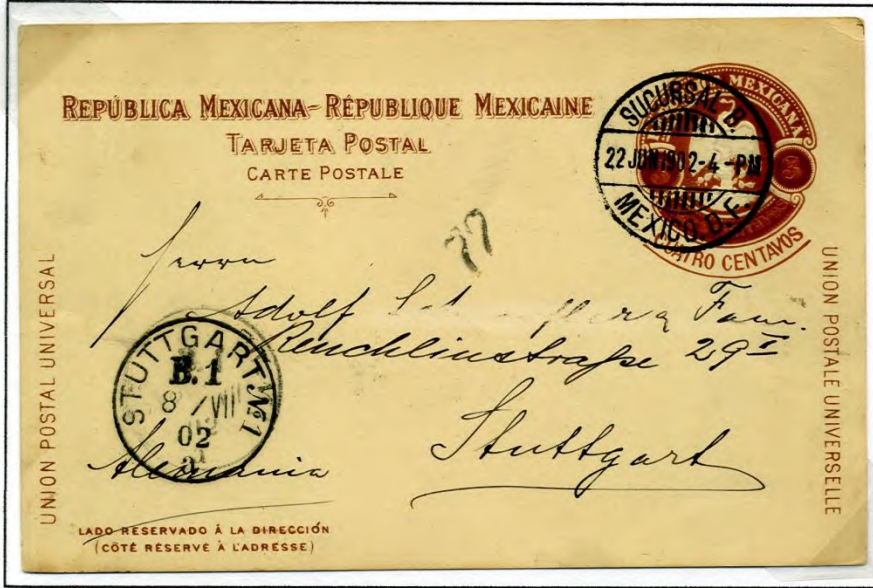 REPÚBLICA MEXICANA-RÉPUBLIQUE MEXICAINE
TARJETA POSTAL
CARTE POSTALE
MEXICANA
CENTAVOS
SUCURSAL B.
22 JUN 1902-4-PM
MEXICO, D.F.
77
UNION POSTAL UNIVERSAL
UNION POSTALE UNIVERSELLE
Herrn
Adolf Fam.
Reuchlinstraße 29 I
Stuttgart
Alemania
STUTTGART No 1
B.1
8/VII
02
LADO RESERVADO Á LA DIRECCIÓN
(CÔTÉ RÉSERVÉ À L'ADRESSE)